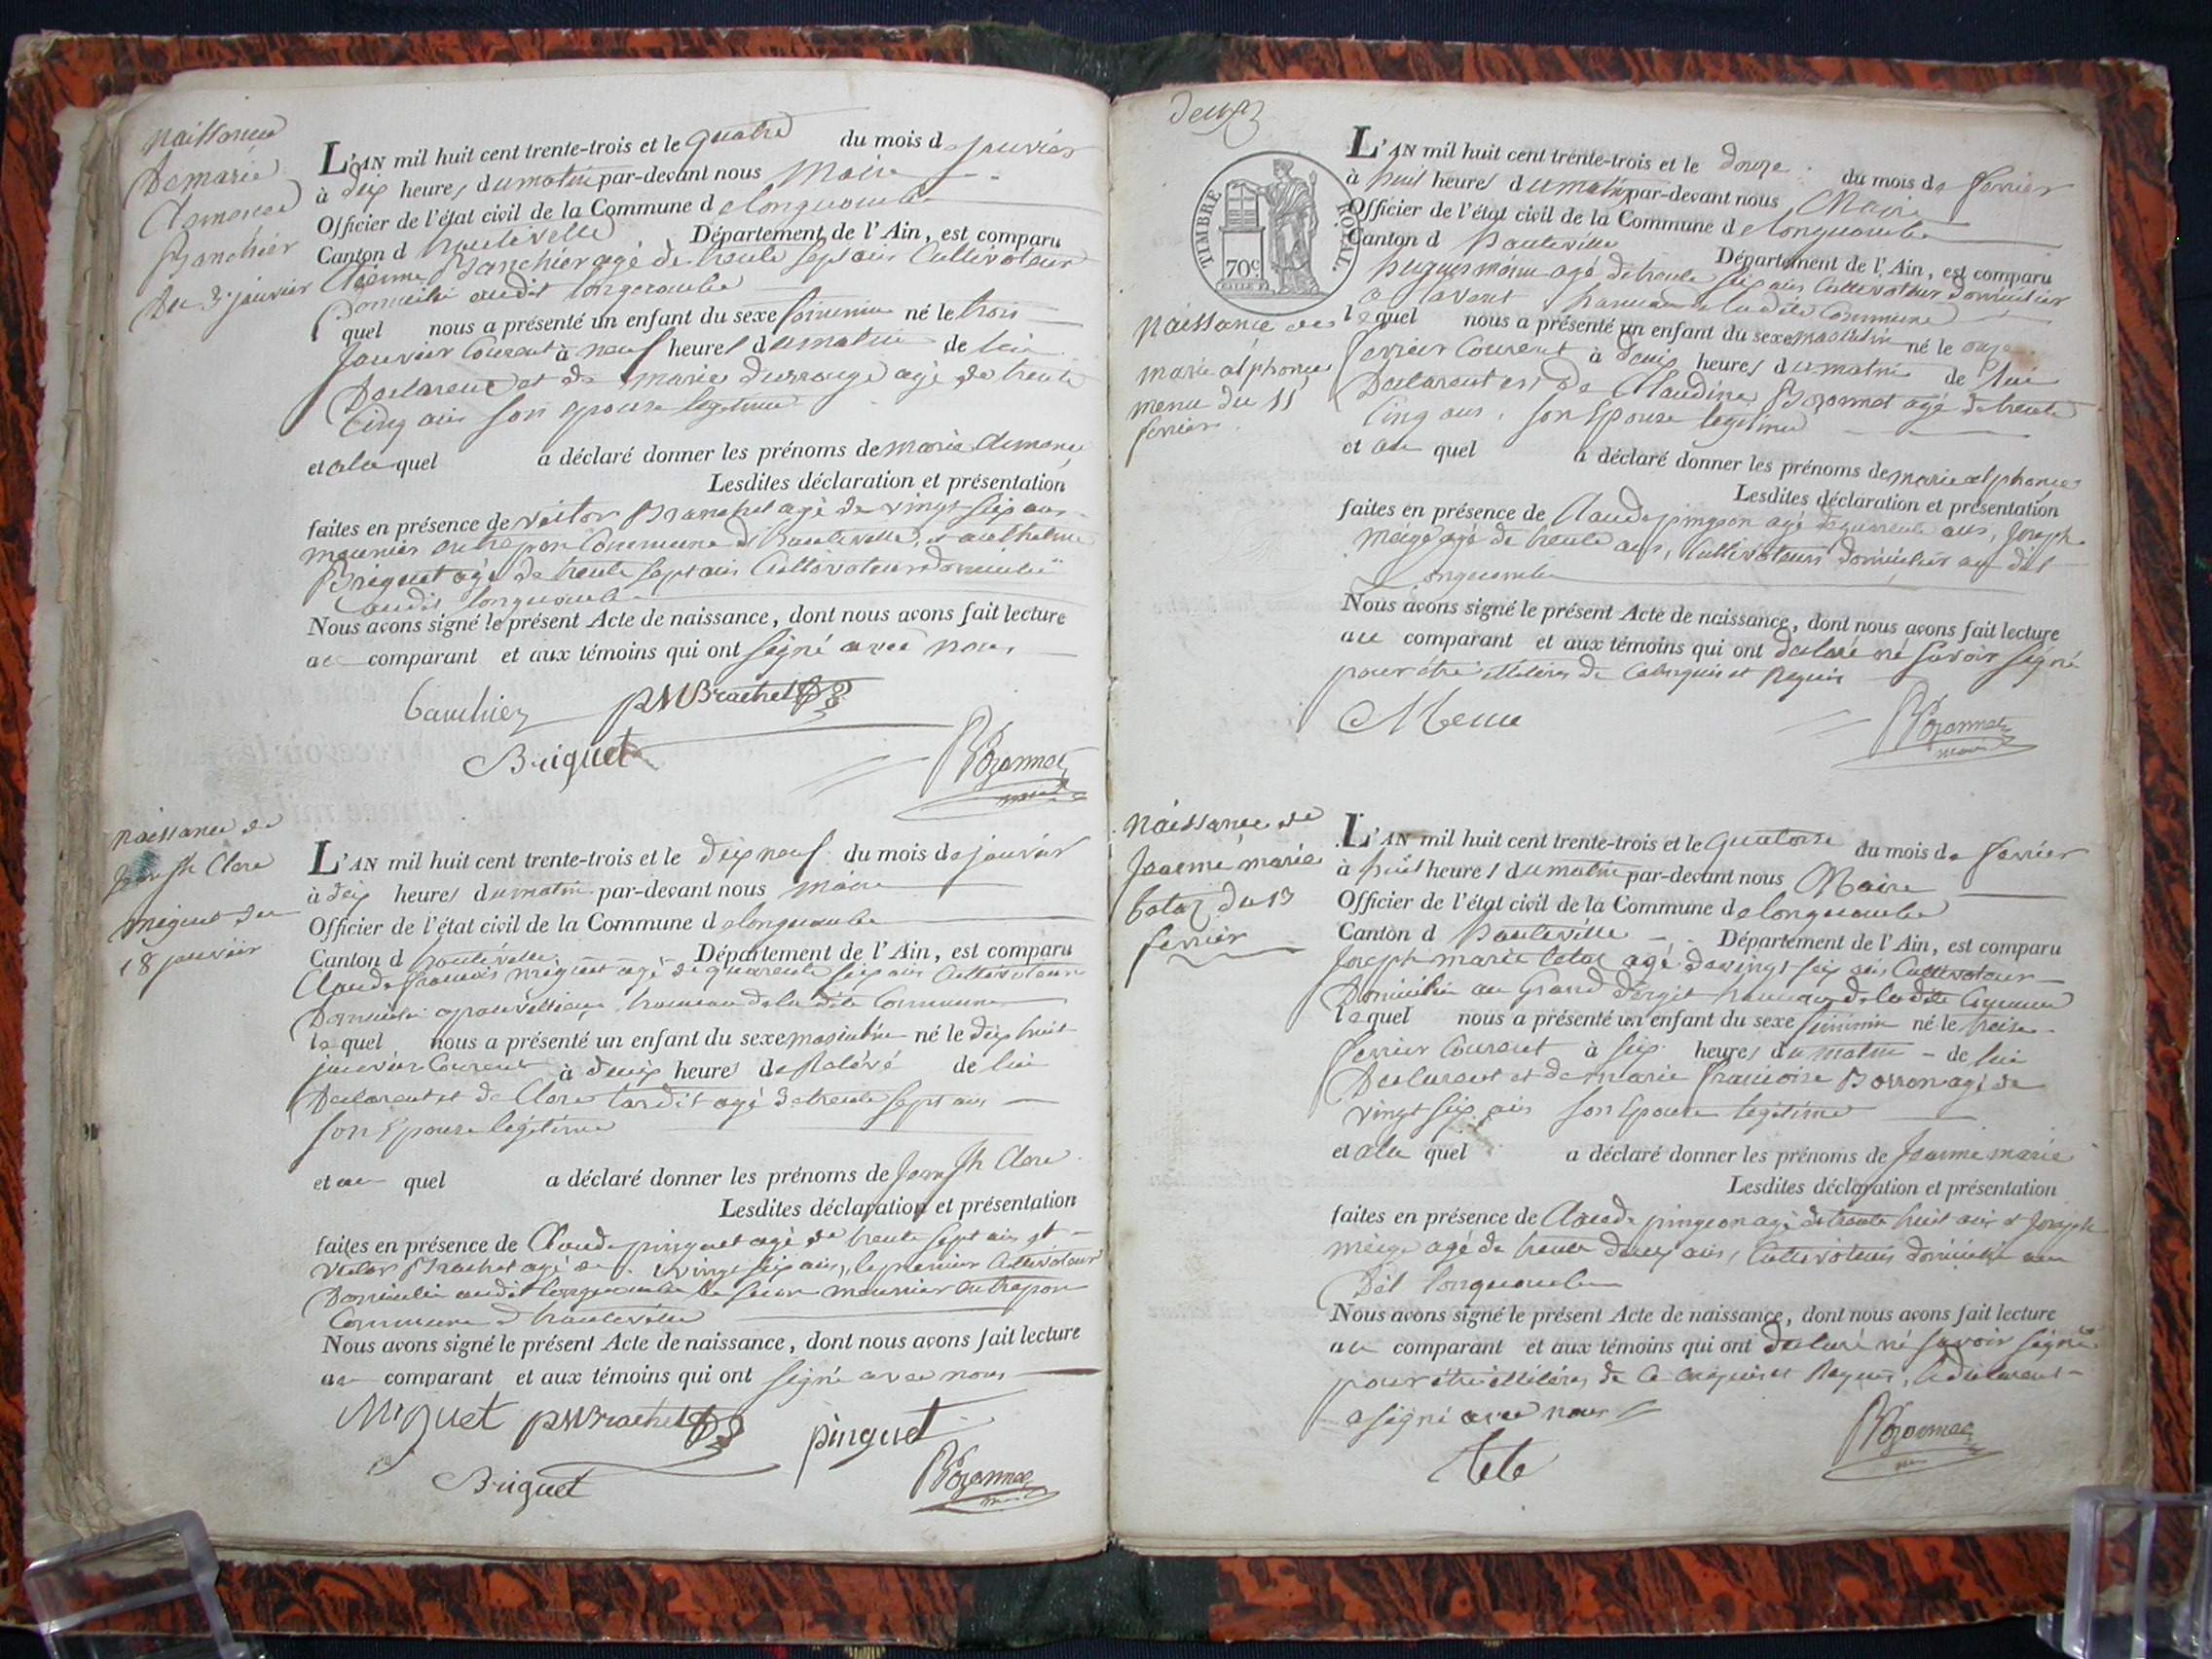 naissance
De marie
Clemence
Banchier
Du 3 janvier
L'AN mil huit cent trente-trois et le quatre du mois de janvier
à dix heures du matin par-devant nous Maire
Officier de l'état civil de la Commune de longecombe
Canton d hauteville Département de l'Ain, est comparu
Etienne Banchier agé de trente sept ans Cultivateur
Domicilié audit longecombe
lequel nous a présenté un enfant du sexe feminin né le trois
janvier Courent à neuf heures du matin de lui
Declarent et de marie agé de trente
Cinq ans son epouse legitime
et a la quel a déclaré donner les prénoms de marie Clemence
Lesdites déclaration et présentation
faites en présence de victor Brachet agé de vingt six ans
meunier entrepon Commune d'hauteville, et anthelme
Briguet agé de trente sept ans Cultivateur domicilié
audit longecombe
Nous avons signé le présent Acte de naissance, dont nous avons fait lecture
au comparant et aux témoins qui ont signé avec nous
Banchier PMBrachet
Briguet Bozonnet
maire
naissance de
Joseph Clere
miguet du
18 janvier
L'AN mil huit cent trente-trois et le dix neuf du mois de janvier
à dix heures du matin par-devant nous maire
Officier de l'état civil de la Commune de longecombe
Canton d hauteville Département de l'Ain, est comparu
Claude francois miguet agé de quarente six ans Cultivateur
Domicilié hameau de la dite Commune
lequel nous a présenté un enfant du sexe masculin né le dix huit
janvier Courent à deux heures de Relevé de lui
Declarent et de Clere tardit agé de trente sept ans
son Epouse légitime
et au quel a déclaré donner les prénoms de Joseph Clere
Lesdites déclaration et présentation
faites en présence de Claude pinguet agé de trente sept ans et
victor Brachet agé de vingt six ans, le premier Cultivateur
Domicilié audit longecombe le secon meunier entrepon
Commune d'hauteville
Nous avons signé le présent Acte de naissance, dont nous avons fait lecture
au comparant et aux témoins qui ont signé avec nous
Miguet PMBrachet pinguet
Briguet Bozonnet
deux
TIMBRE ROYAL.
70c
naissance de
marie alphonse
menu du 11
fevrier
L'AN mil huit cent trente-trois et le douze du mois de fevrier
à huit heures du matin par-devant nous Maire
Officier de l'état civil de la Commune de longecombe
Canton d hauteville Département de l'Ain, est comparu
hugues menu agé de trente six ans Cultivateur Domicilié
a hameau de ladite Commune
lequel nous a présenté un enfant du sexe masculin né le onze
fevrier Courent à deux heures du matin de lui
Declarent et de Claudine Bozonnet agé de trente
Cinq ans, son Epouse legitime
et au quel a déclaré donner les prénoms de marie alphonse
Lesdites déclaration et présentation
faites en présence de Claude pingeon agé de quarente ans, Joseph
meige agé de trente ans, Cultivateurs domiciliés au dit
Longecombe
Nous avons signé le présent Acte de naissance, dont nous avons fait lecture
au comparant et aux témoins qui ont declaré ne savoir signé
pour être illiterés de ce enquis et Requis
Menu Bozonnet
maire
naissance de
Jeanne marie
tetaz du 13
fevrier
L'AN mil huit cent trente-trois et le quatorze du mois de fevrier
à huit heures du matin par-devant nous Maire
Officier de l'état civil de la Commune de longecombe
Canton d hauteville Département de l'Ain, est comparu
Joseph marie tetaz agé de vingt six ans Cultivateur
Domicilié au Grand Dergit hameau de la dite Commune
lequel nous a présenté un enfant du sexe feminin né le treize
fevrier Courent à six heures du matin de lui
Declarent et de marie francoise Borron agé de
vingt six ans son Epouse legitime
et a la quel a déclaré donner les prénoms de Jeanne marie
Lesdites déclaration et présentation
faites en présence de Claude pingeon agé de trente huit ans et Joseph
meige agé de trente deux ans, Cultivateurs domicilié au
Dit longecombe
Nous avons signé le présent Acte de naissance, dont nous avons fait lecture
au comparant et aux témoins qui ont declaré ne savoir signé
pour être illiterés de ce enquis et Requis, le declarent
a signé avec nous
tete Bozonnet